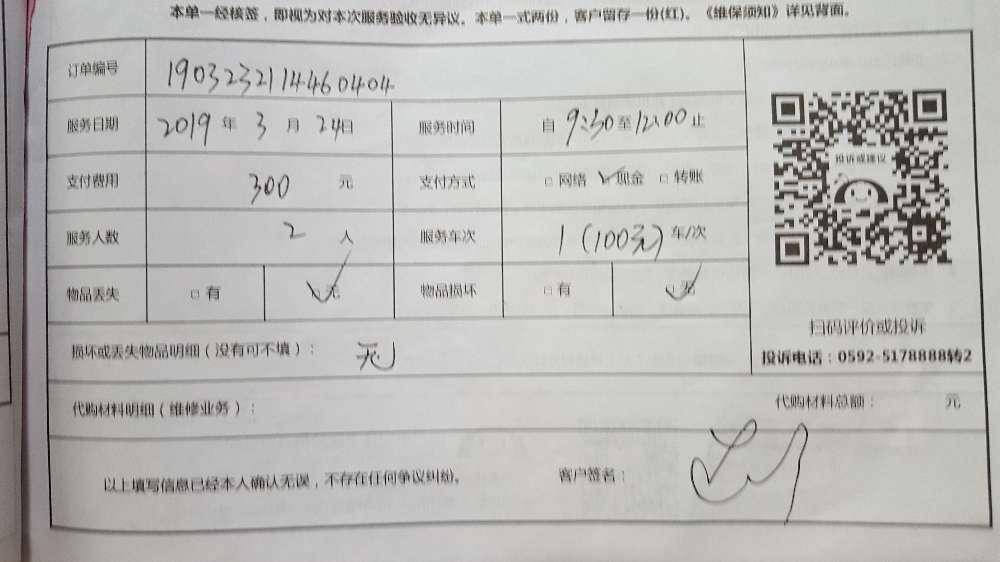 本单一经核签，即视为对本次服务验收无异议。本单一式两份，客户留存一份(红)。《维保须知》详见背面。
订单编号 1903232114460404
服务日期 2019 年 3 月 24日 服务时间 自 9:30至12:00止
支付费用 300 元 支付方式 □网络 ✓现金 □转账
服务人数 2 人 服务车次 1(100元)车/次
物品丢失 □有 ✓无 物品损坏 □有 ✓无
投诉或建议
扫码评价或投诉
投诉电话：0592-5178888转2
损坏或丢失物品明细（没有可不填）： 无
代购材料明细（维修业务）： 代购材料总额： 元
以上填写信息已经本人确认无误，不存在任何争议纠纷。 客户签名：